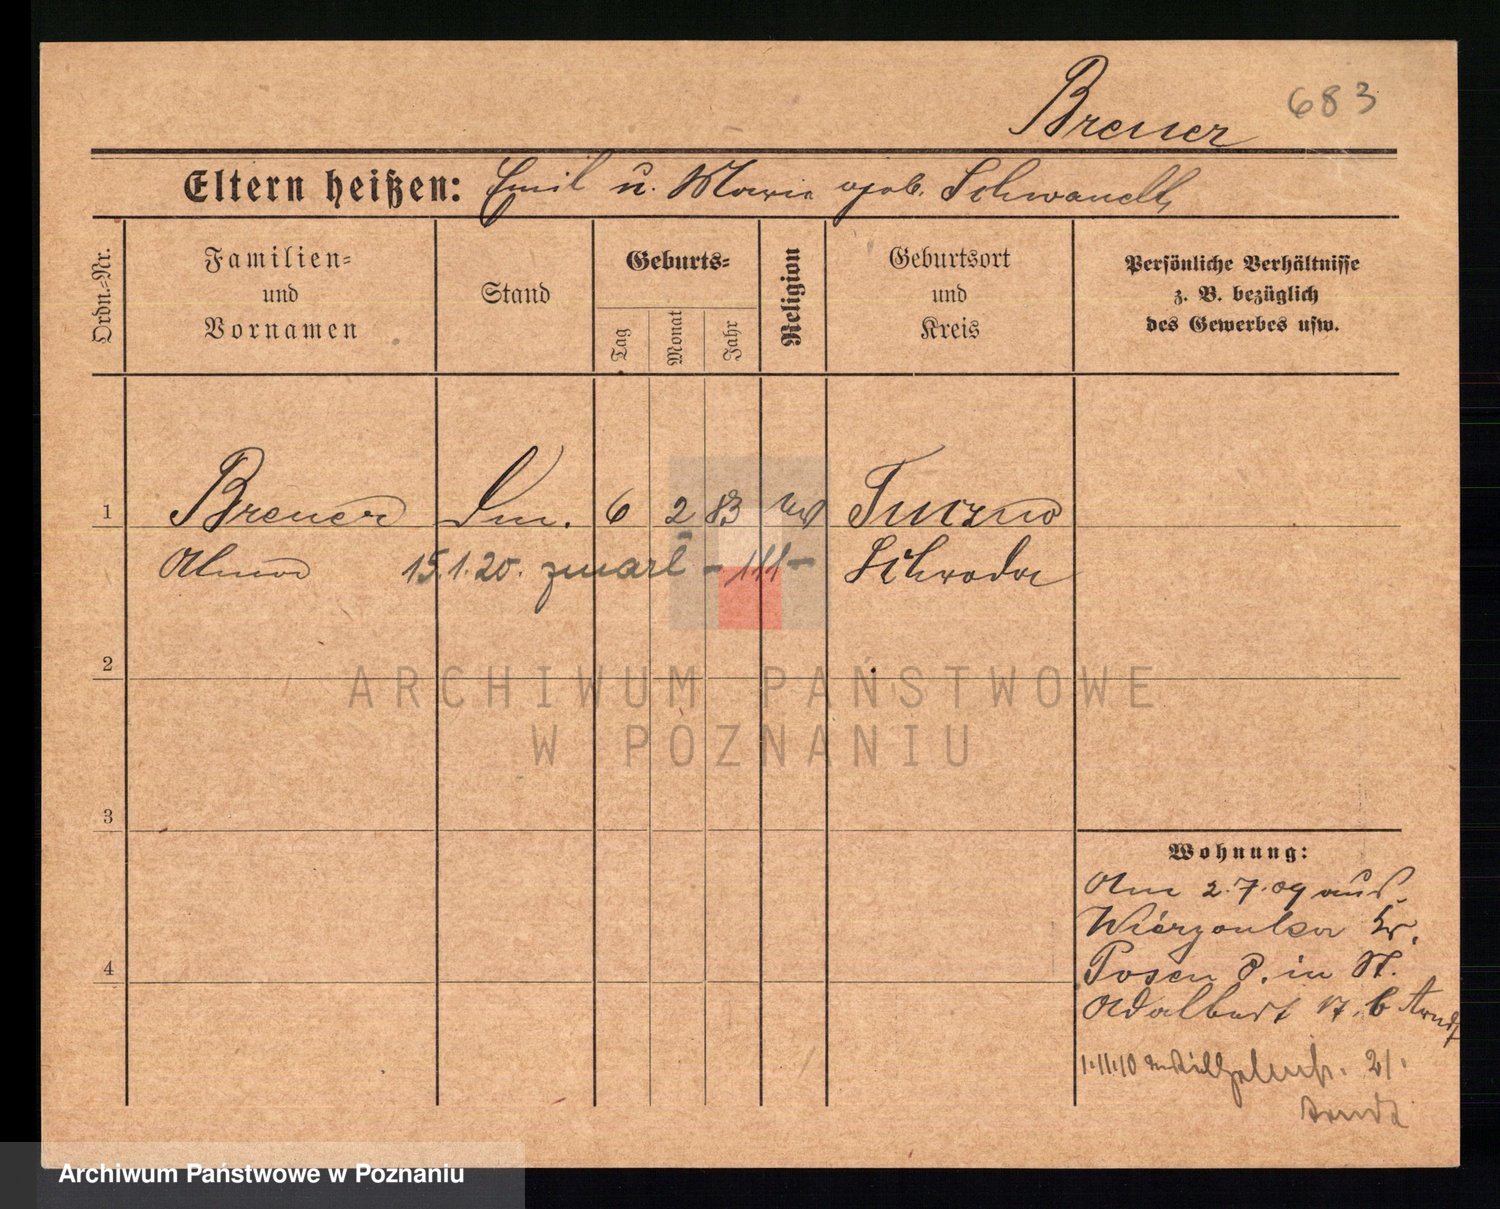 683
Breuer
Eltern heißen: Emil u. Maria geb. Schwandt,
Ordn.-Nr.
Familien-
und
Vornamen
Stand
Geburts-
Tag
Monat
Jahr
Religion
Geburtsort
und
Kreis
Persönliche Verhältnisse
z. B. bezüglich
des Gewerbes usw.
1 Breuer 6 2 83 Tuczno
15.1.20. zmarł - 111 - Schroda
2
ARCHIWUM PAŃSTWOWE
W POZNANIU
3
4
Wohnung:
Am 2.7.09 aus
Wierzonka Kr.
Posen P. in St.
Adalbert 17. b Arndt
1.11.10 21.
Arndt
Archiwum Państwowe w Poznaniu